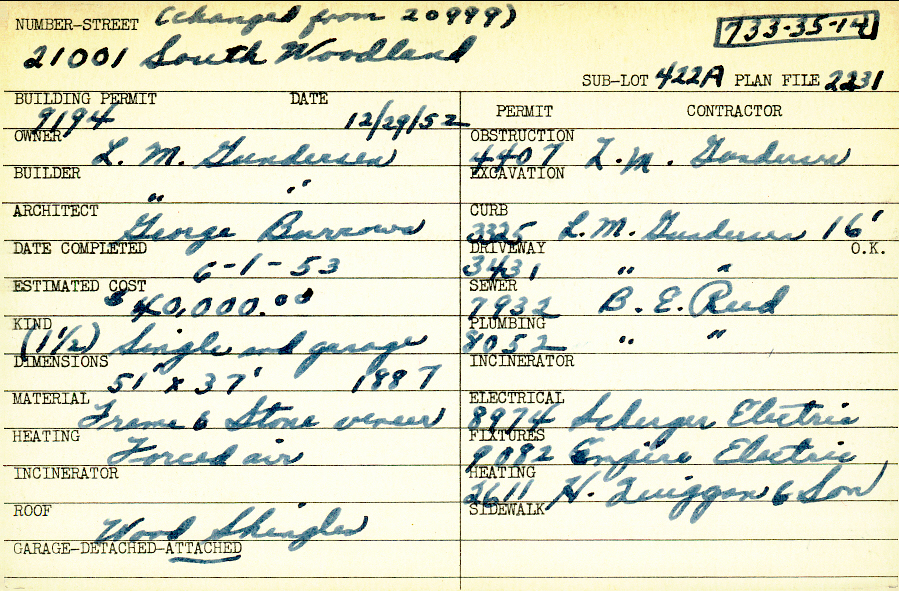 NUMBER-STREET (changed from 20999)
733-35-14
21001 South Woodland
SUB-LOT 422A PLAN FILE 2231
BUILDING PERMIT DATE
9194 12/29/52
OWNER
L. M. Gundersen
BUILDER
" "
ARCHITECT
George Burrows
DATE COMPLETED
6-1-53
ESTIMATED COST
$40,000.00
KIND
(1 1/2) Single and garage
DIMENSIONS
51' x 37' 1887
MATERIAL
Frame & Stone veneer
HEATING
Forced air
INCINERATOR
ROOF
Wood Shingles
GARAGE-DETACHED-ATTACHED
PERMIT CONTRACTOR
OBSTRUCTION
4407 L. M. Gundersen
EXCAVATION
CURB
3325 L. M. Gundersen 16'
DRIVEWAY O.K.
3431 " "
SEWER
7932 B. E. Reed
PLUMBING
8052 " "
INCINERATOR
ELECTRICAL
8974 Scherger Electric
FIXTURES
9082 Empire Electric
HEATING
2611 H. Quiggon & Son
SIDEWALK